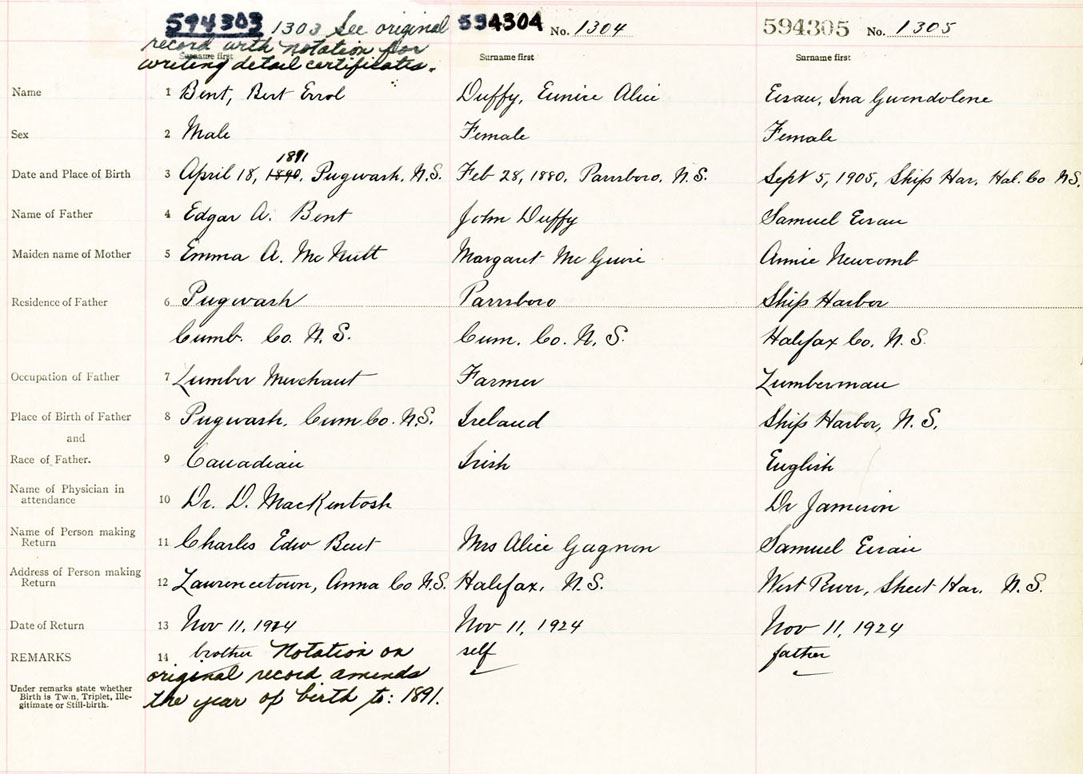 594303 1303 See original
record with notation for
writing detail certificates.
594304 No. 1304
594305 No. 1305
Surname first Surname first Surname first
Name 1 Bent, Bert Errol Duffy, Eunice Alice Eisau, Ina Guendolene
Sex 2 Male Female Female
1891
Date and Place of Birth 3 April 18, 1890, Pugwash, N.S. Feb 28, 1880, Parrsboro, N.S. Sept 5, 1905, Ship Har, Hal. Co N.S.
Name of Father 4 Edgar A. Bent John Duffy Samuel Eisau
Maiden name of Mother 5 Emma A. McNutt Margaret McGuire Annie Newcomb
Residence of Father 6 Pugwash Parrsboro Ship Harbor
Cumb. Co. N.S. Cum. Co. N.S. Halifax Co. N.S.
Occupation of Father 7 Lumber Merchant Farmer Lumberman
Place of Birth of Father 8 Pugwash, Cum Co. N.S. Ireland Ship Harbor, N.S.
and
Race of Father. 9 Canadian Irish English
Name of Physician in
attendance 10 Dr. D. MacKintosh Dr Jamison
Name of Person making
Return 11 Charles Edw Bent Mrs Alice Gagnon Samuel Eisau
Address of Person making
Return 12 Lawrencetown, Anna Co N.S. Halifax, N.S. West River, Sheet Har, N.S.
Date of Return 13 Nov 11, 1924 Nov 11, 1924 Nov 11, 1924
REMARKS 14 brother Notation on self father
original record amends
the year of birth to: 1891.
Under remarks state whether
Birth is Twin, Triplet, Ille-
gitimate or Still-birth.